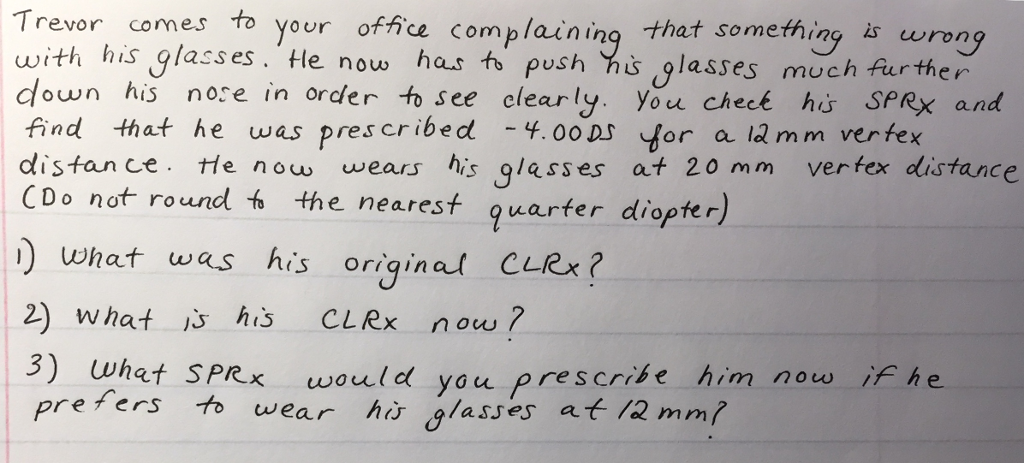 Trevor comes to your office complaining that something is wrong
with his glasses. He now has to push his glasses much further
down his nose in order to see clearly. You check his SPRx and
find that he was prescribed -4.00 DS for a 12 mm vertex
distance. He now wears his glasses at 20 mm vertex distance
(Do not round to the nearest quarter diopter)
1) What was his original CLRx?
2) What is his CLRx now?
3) What SPRx would you prescribe him now if he
prefers to wear his glasses at 12 mm?